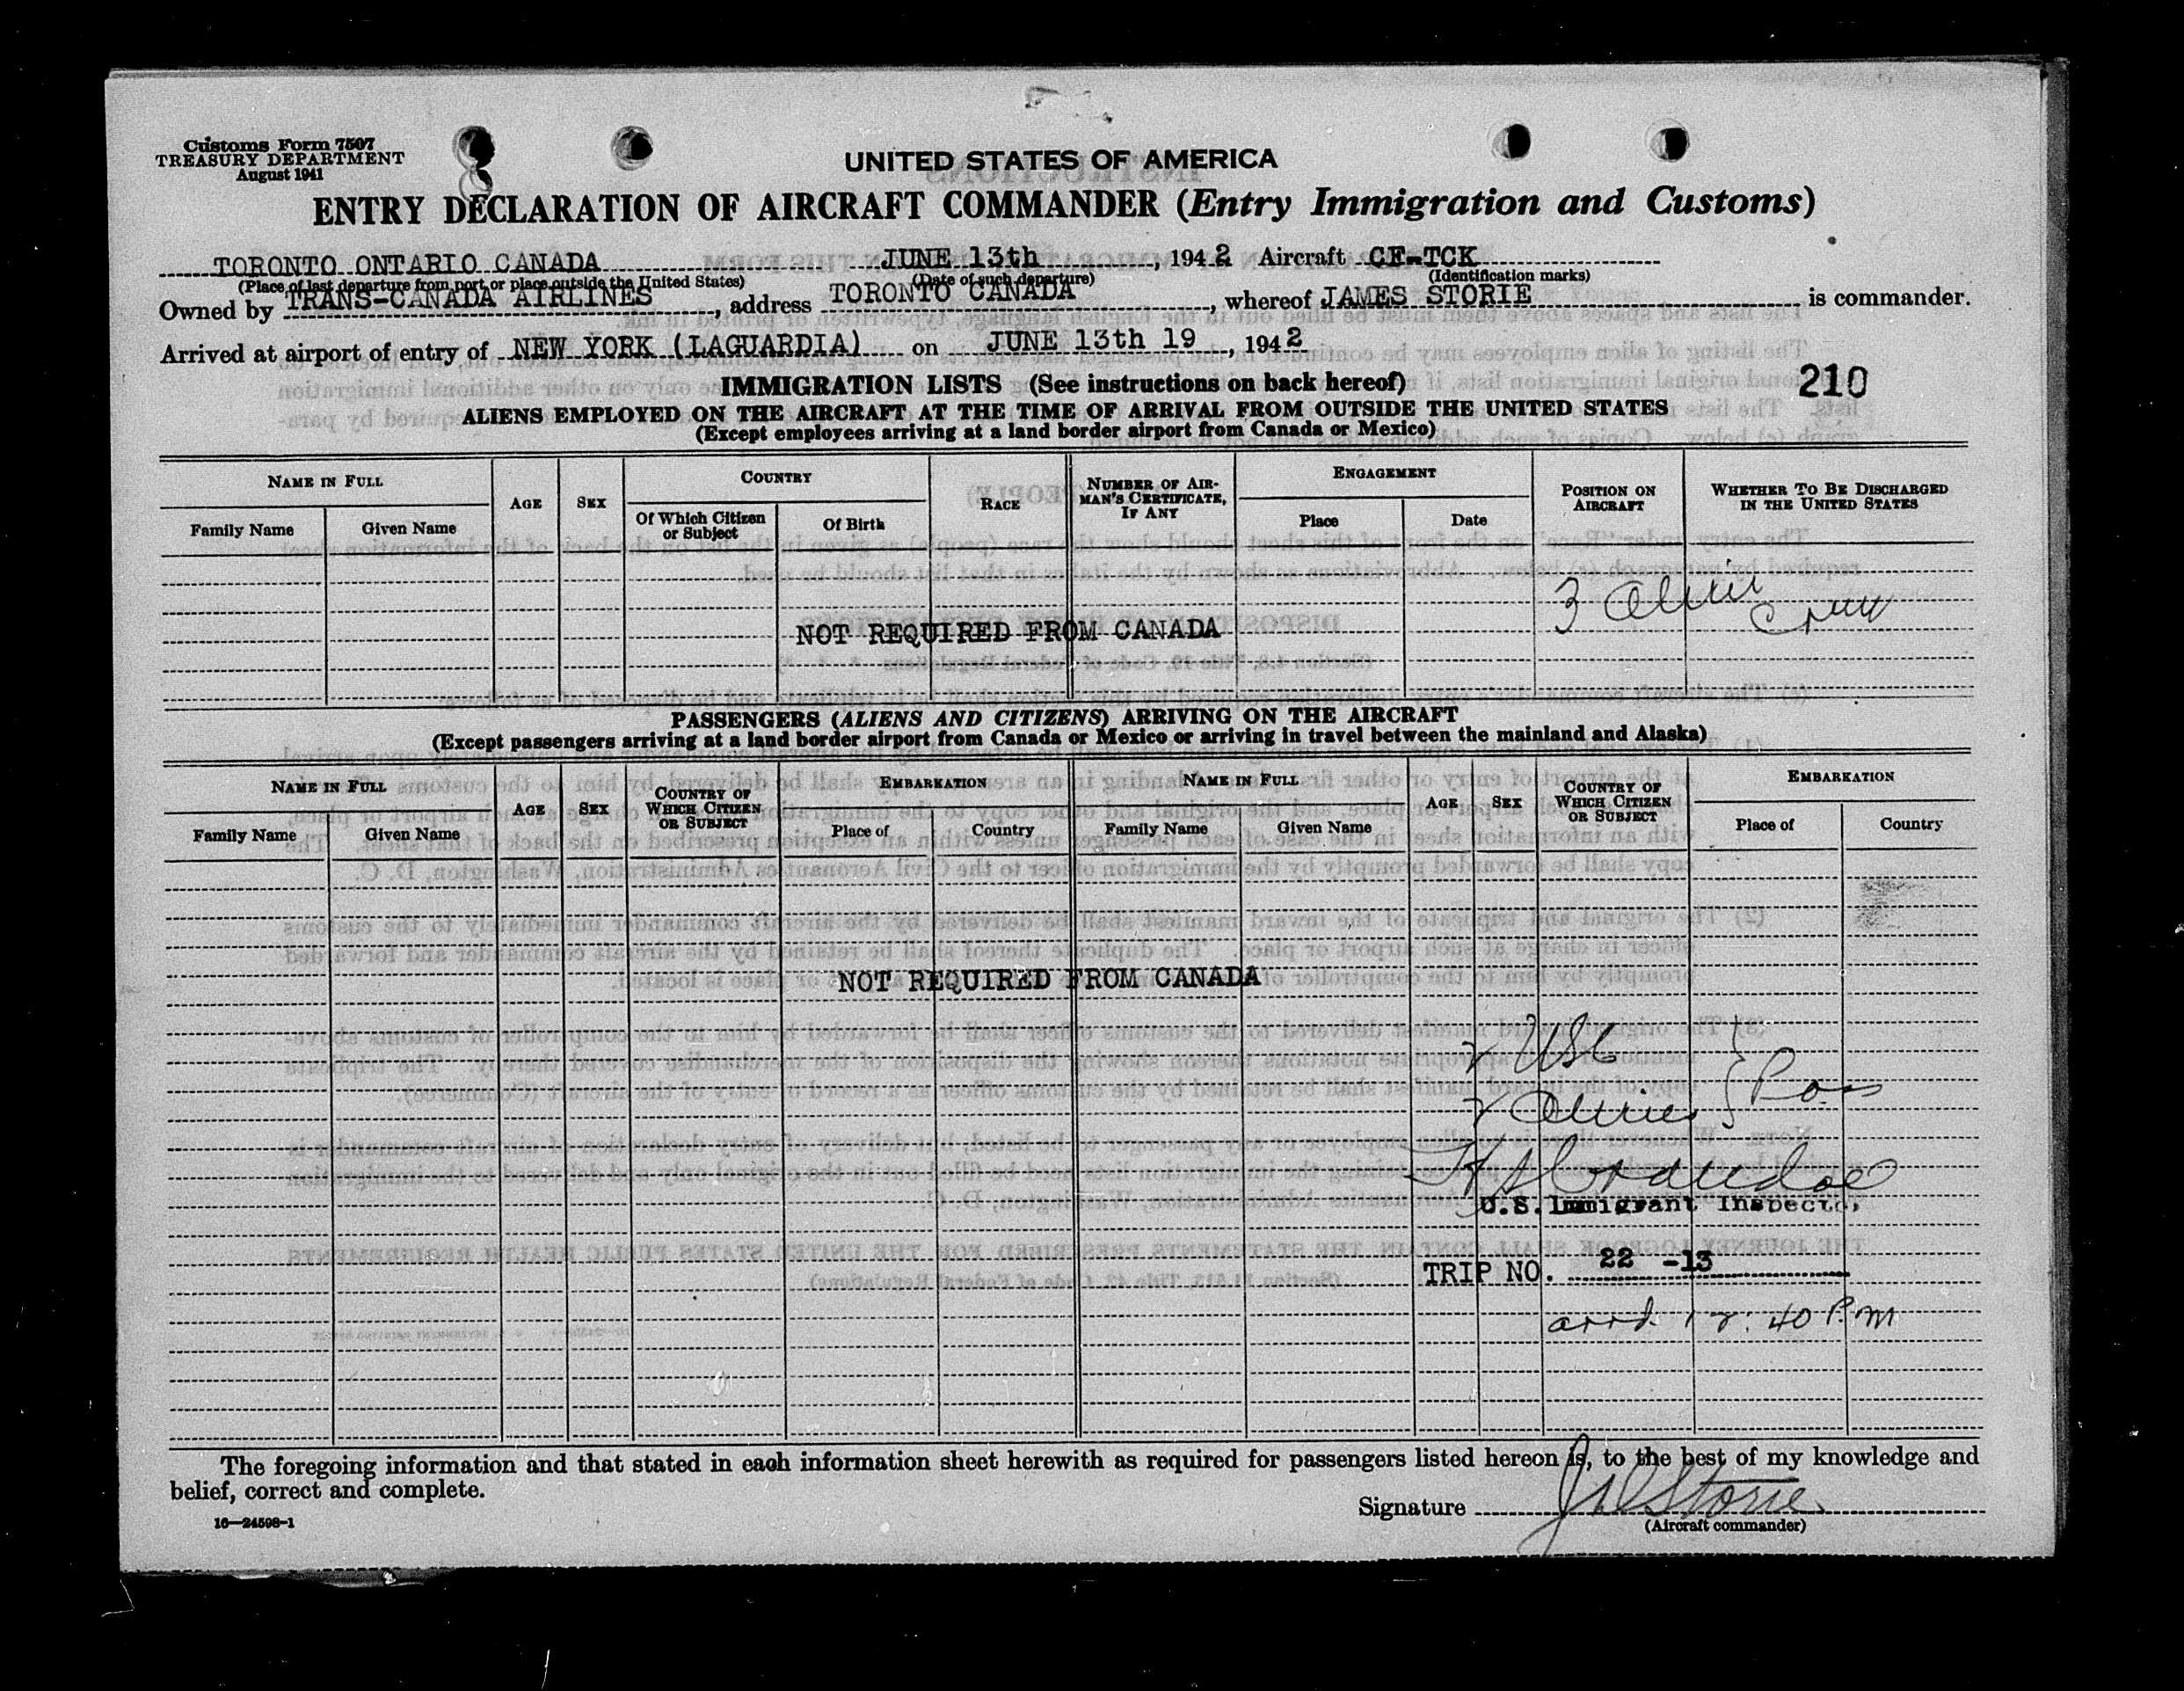 Customs Form 7507
TREASURY DEPARTMENT
August 1941
UNITED STATES OF AMERICA
ENTRY DECLARATION OF AIRCRAFT COMMANDER (Entry Immigration and Customs)
TORONTO ONTARIO CANADA JUNE 13th, 1942 Aircraft CF-TCK
(Place of last departure from port or place outside the United States) (Date of such departure) (Identification marks)
Owned by TRANS-CANADA AIRLINES, address TORONTO CANADA, whereof JAMES STORIE is commander.
Arrived at airport of entry of NEW YORK (LAGUARDIA) on JUNE 13th 19, 1942
IMMIGRATION LISTS (See instructions on back hereof)
210
ALIENS EMPLOYED ON THE AIRCRAFT AT THE TIME OF ARRIVAL FROM OUTSIDE THE UNITED STATES
(Except employees arriving at a land border airport from Canada or Mexico)
NAME IN FULL AGE SEX COUNTRY RACE NUMBER OF AIRMAN'S CERTIFICATE, IF ANY ENGAGEMENT POSITION ON AIRCRAFT WHETHER TO BE DISCHARGED IN THE UNITED STATES
Family Name Given Name Of Which Citizen or Subject Of Birth Place Date
3 Alien
Crew
NOT REQUIRED FROM CANADA
PASSENGERS (ALIENS AND CITIZENS) ARRIVING ON THE AIRCRAFT
(Except passengers arriving at a land border airport from Canada or Mexico or arriving in travel between the mainland and Alaska)
NAME IN FULL AGE SEX COUNTRY OF WHICH CITIZEN OR SUBJECT EMBARKATION NAME IN FULL AGE SEX COUNTRY OF WHICH CITIZEN OR SUBJECT EMBARKATION
Family Name Given Name Place of Country Family Name Given Name Place of Country
NOT REQUIRED FROM CANADA
7 USC
7 Aliens } Pass
U.S. Immigrant Inspector
TRIP NO. 22 -13
arrd. 12:40 P.M
The foregoing information and that stated in each information sheet herewith as required for passengers listed hereon is, to the best of my knowledge and
belief, correct and complete.
Signature J Storie
(Aircraft commander)
16—24598-1